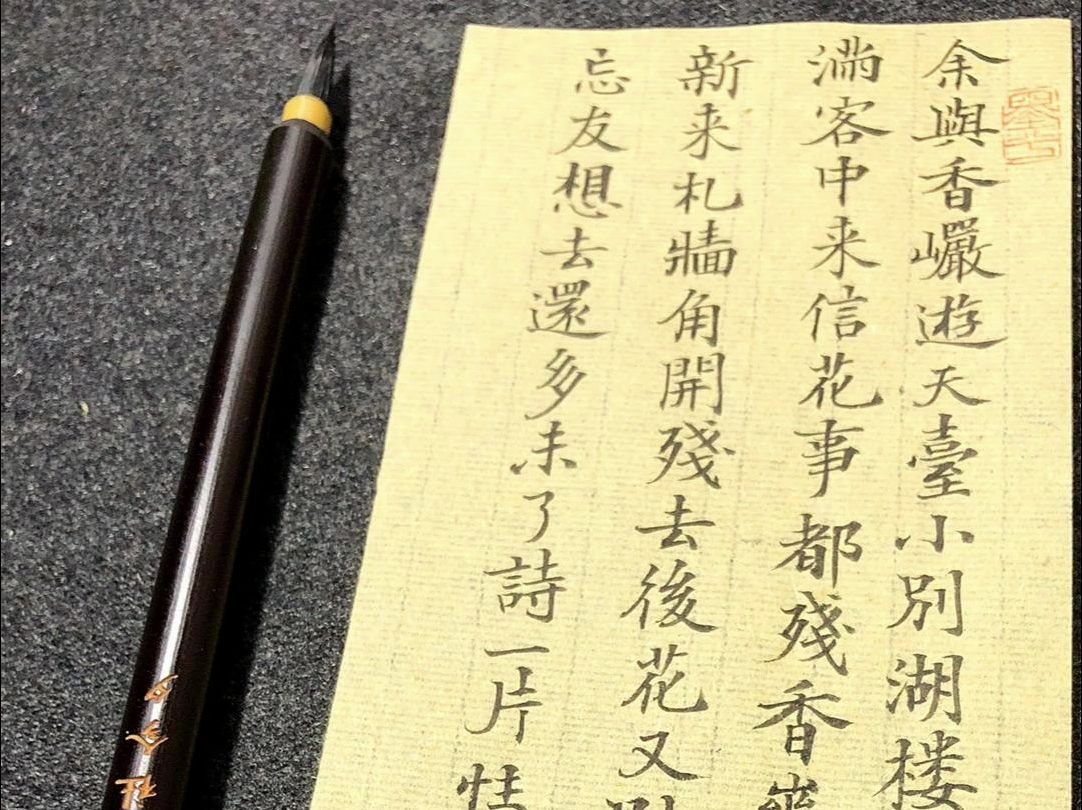 余與香巖遊天臺小別湖楼
滿客中来信花事都殘香
新来札牆角開殘去後花又
忘友想去還多未了詩一片性